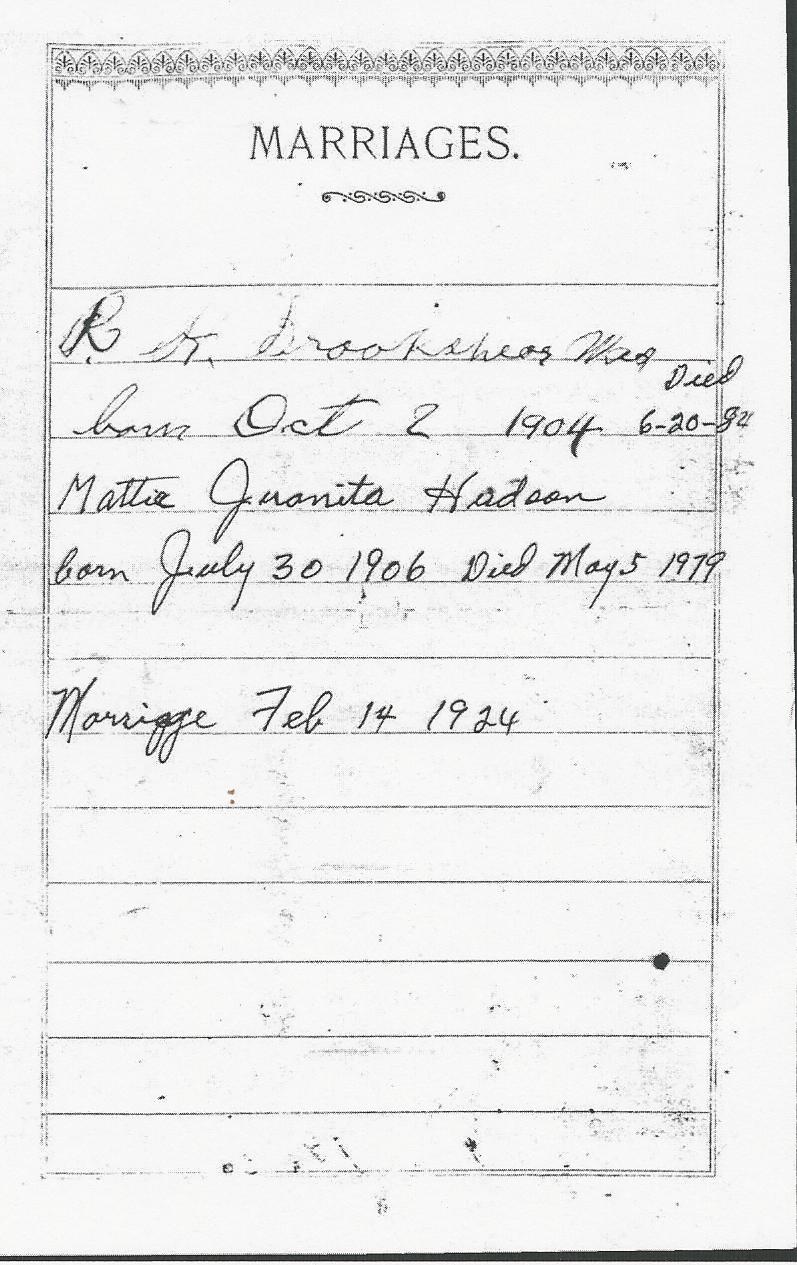 MARRIAGES.
R. Brookshear Was
Died
born Oct 2 1904 6-20-84
Mattie Juanita Hudson
born July 30 1906 Died May 5 1979
Marriage Feb 14 1924